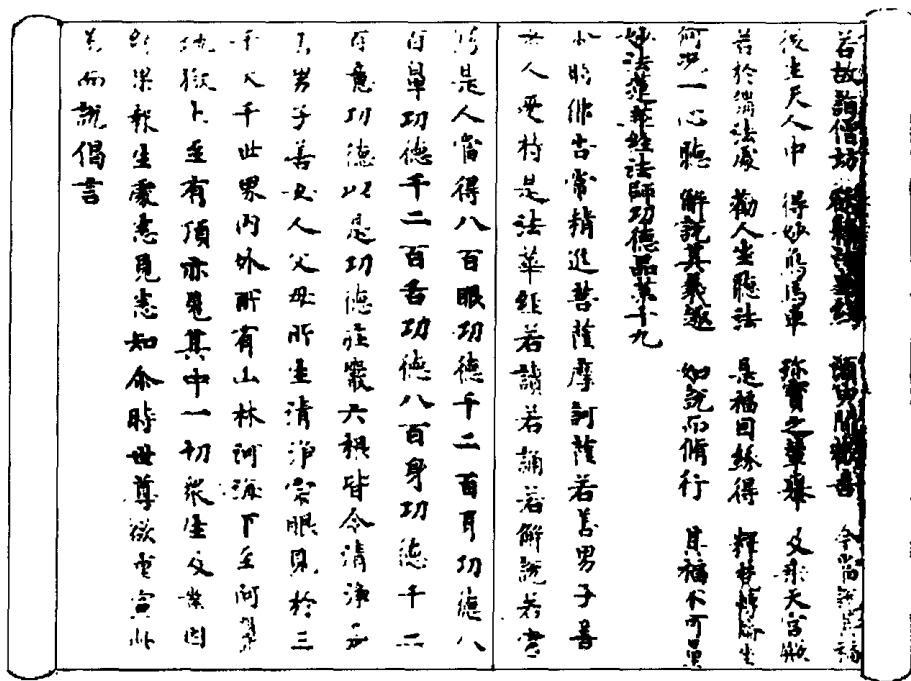 若故詣僧坊 欲聽法華經 須臾聞歡喜 今當說其福
後生天人中 得妙馬車 珎寶之輦轝 及乘天宮殿
若於講法處 勸人坐聽法 是福因緣得 釋梵轉座
何況一心聽 解說其義趣 如說而脩行 其福不可量
妙法蓮華經法師功德品第十九
尒時佛告常精進菩薩摩訶薩若善男子善
女人受持是法華經若讀若誦若解說若書
寫是人當得八百眼功德千二百耳功德八
百鼻功德千二百舌功德八百身功德千二
百意功德以是功德莊嚴六根皆令清淨是
善男子善女人父母所生清淨肉眼見於三
千大千世界內外所有山林河海下至阿鼻
地獄上至有頂亦見其中一切衆生及業因
緣果報生處悉見悉知尒時世尊欲重宣此
義而說偈言